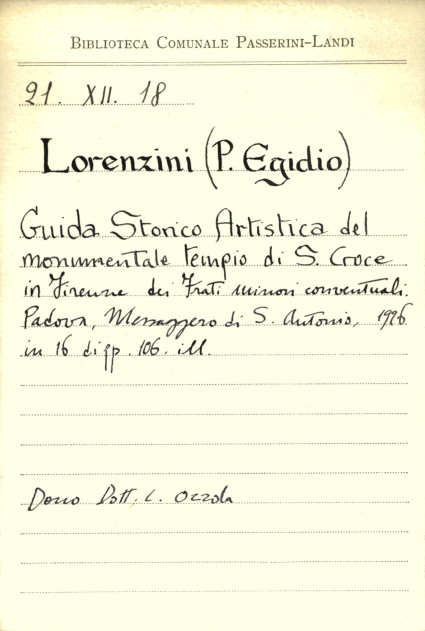 BIBLIOTECA COMUNALE PASSERINI-LANDI
21. XII. 18
Lorenzini (P. Egidio)
Guida Storico Artistica del
monumentale tempio di S. Croce
in Firenze dei Frati minori conventuali.
Padova, Messaggero di S. Antonio, 1926
in 16 di pp. 106. ill.
Dono Dott. L. Ozzola